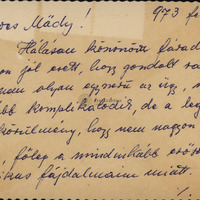 973 fe
ves Mády!
Hálásan köszönöm fárad
on jól esett, hogy gondolt rá
nem olyan egyszerű az ügy,
bb komplikálódik, de a leg
körülmény, hogy nem nagyon
, főleg a mindinkább erős
ikus fájdalmaim miatt.